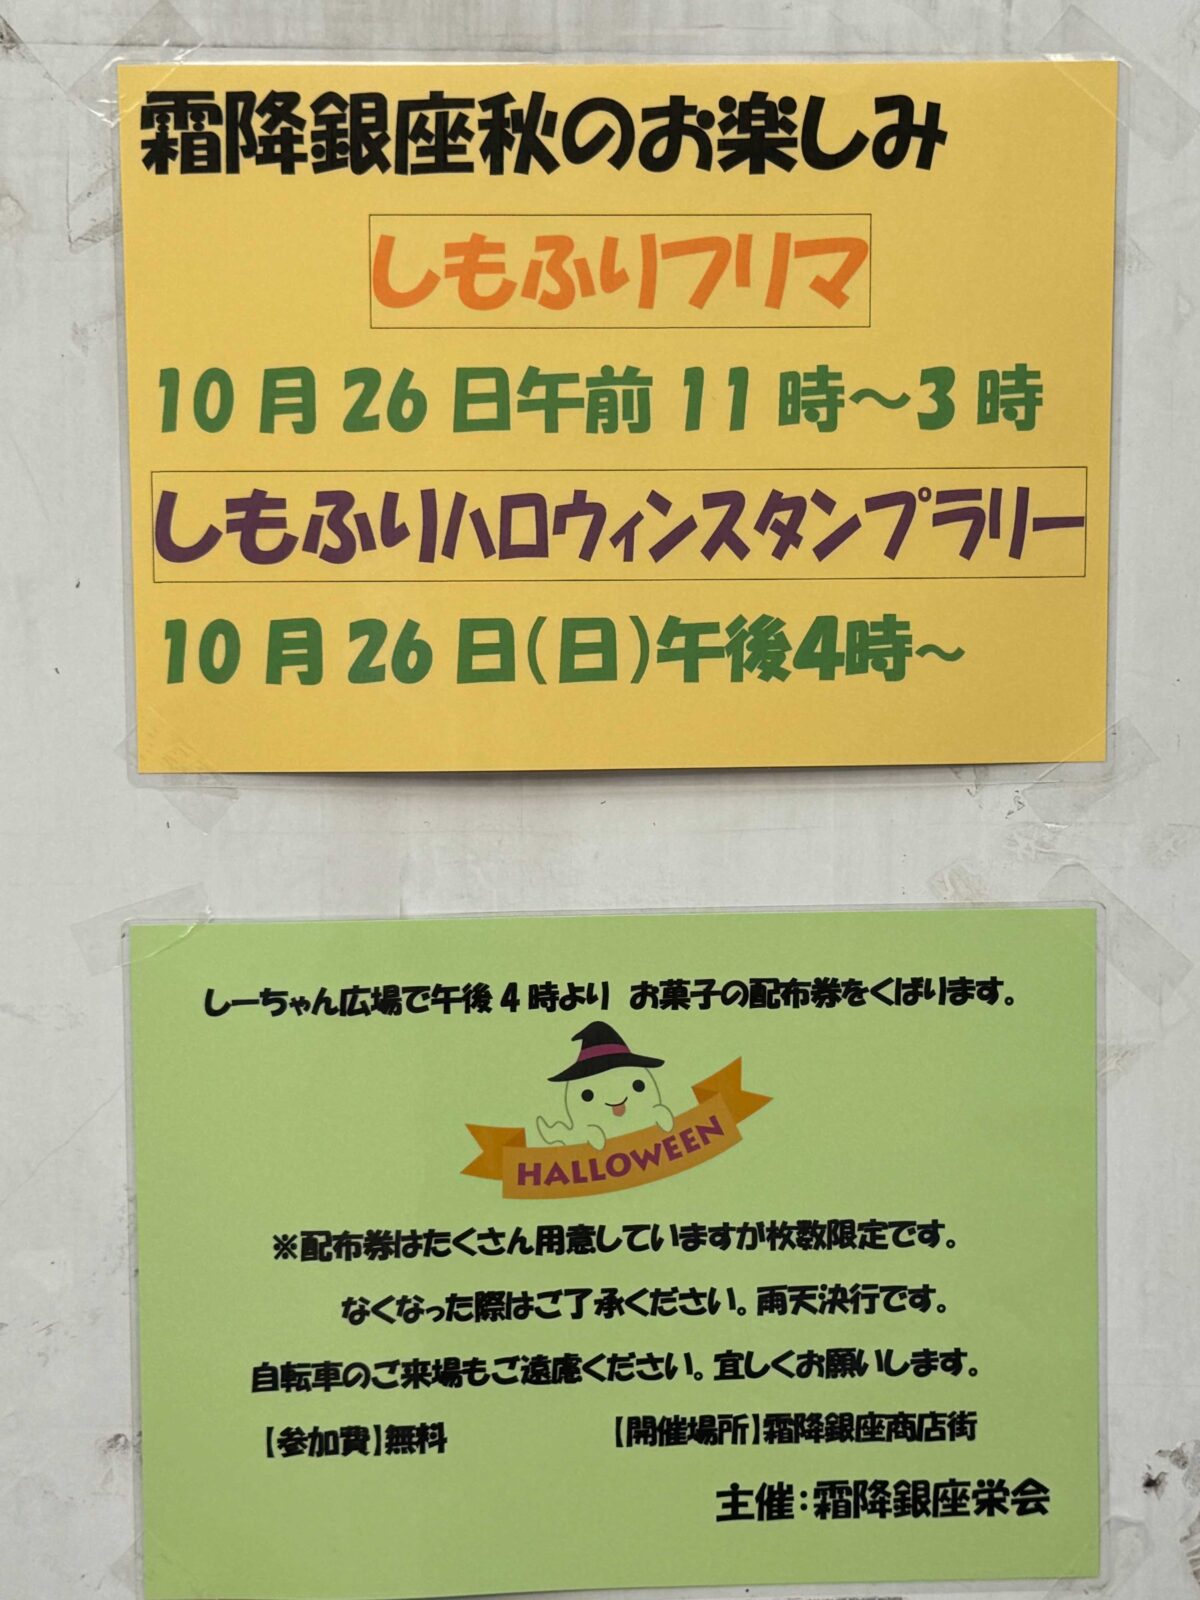 霜降銀座秋のお楽しみ
しもふりフリマ
10月26日午前11時～3時
しもふりハロウィンスタンプラリー
10月26日(日)午後4時～
しーちゃん広場で午後4時より お菓子の配布券をくばります。
HALLOWEEN
※配布券はたくさん用意していますが枚数限定です。
なくなった際はご了承ください。雨天決行です。
自転車のご来場もご遠慮ください。宜しくお願いします。
【参加費】無料 【開催場所】霜降銀座商店街
主催:霜降銀座栄会